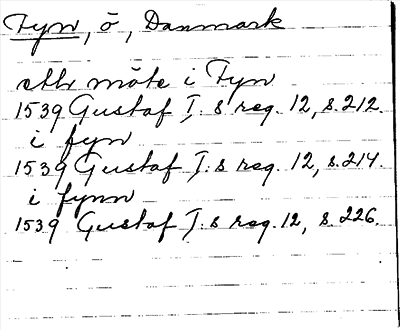 Fyn, ö, Danmark
ettr möte i Fyn
1539 Gustaf I:s reg. 12, s. 212.
i fyn
1539 Gustaf I:s reg. 12, s. 214.
i fynn
1539 Gustaf I:s reg. 12, s. 226.